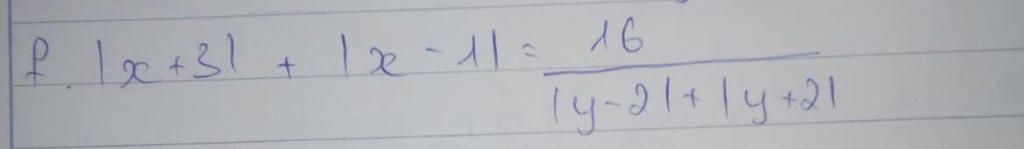 f. |x+3| + |x-1| = 16 / |y-2|+|y+2|